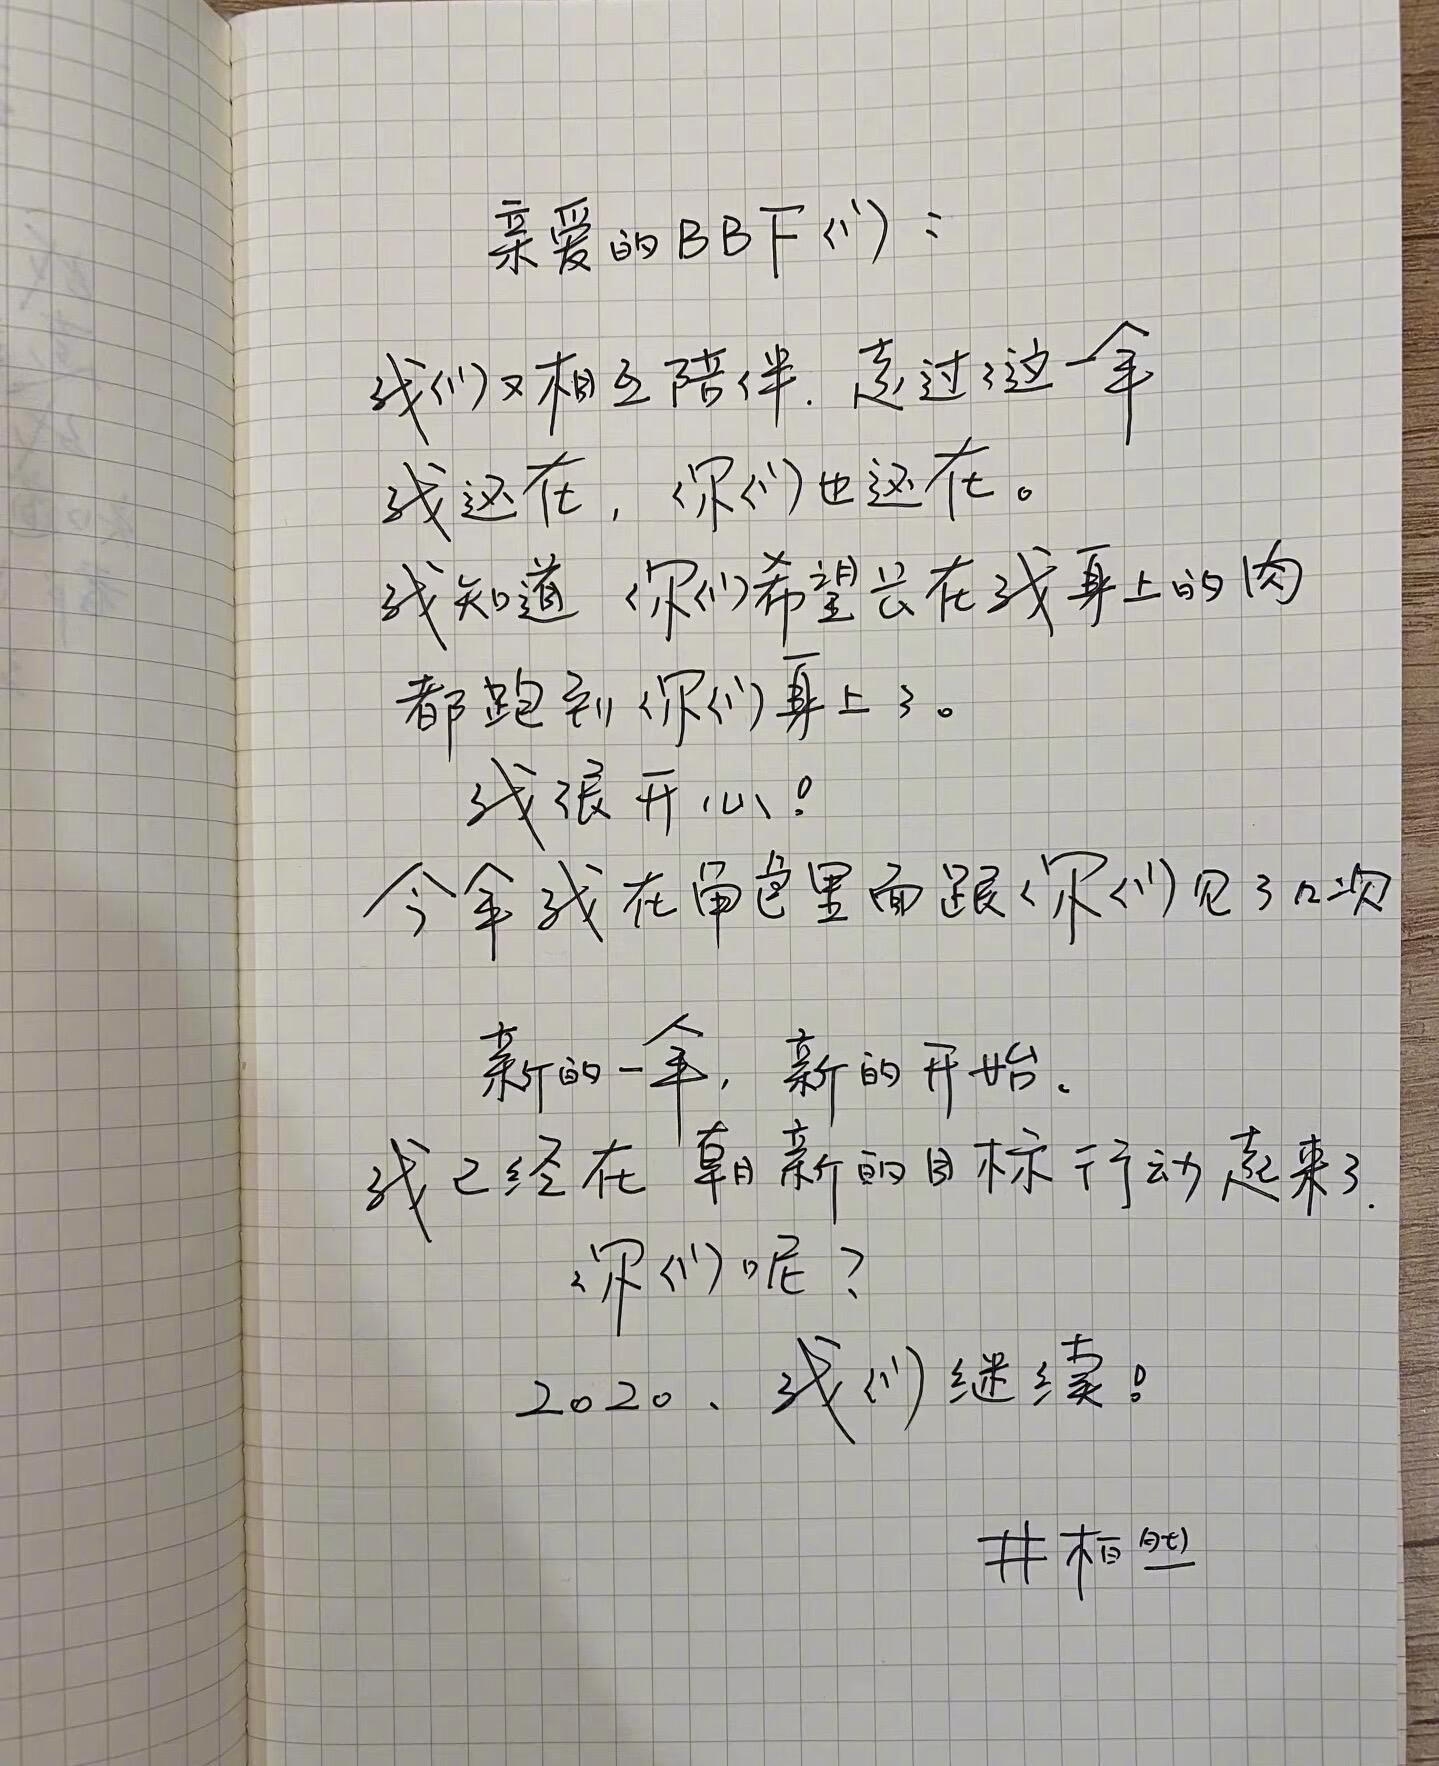 亲爱的BB下们：
我们又相互陪伴.走过了这一年
我还在，你们也还在。
我知道 你们希望长在我身上的肉
都跑到你们身上了。
我很开心！
今年我在角色里面跟你们见了几次
新的一年，新的开始.
我已经在 朝新的目标行动起来了.
你们呢？
2020、我们继续！
井柏然